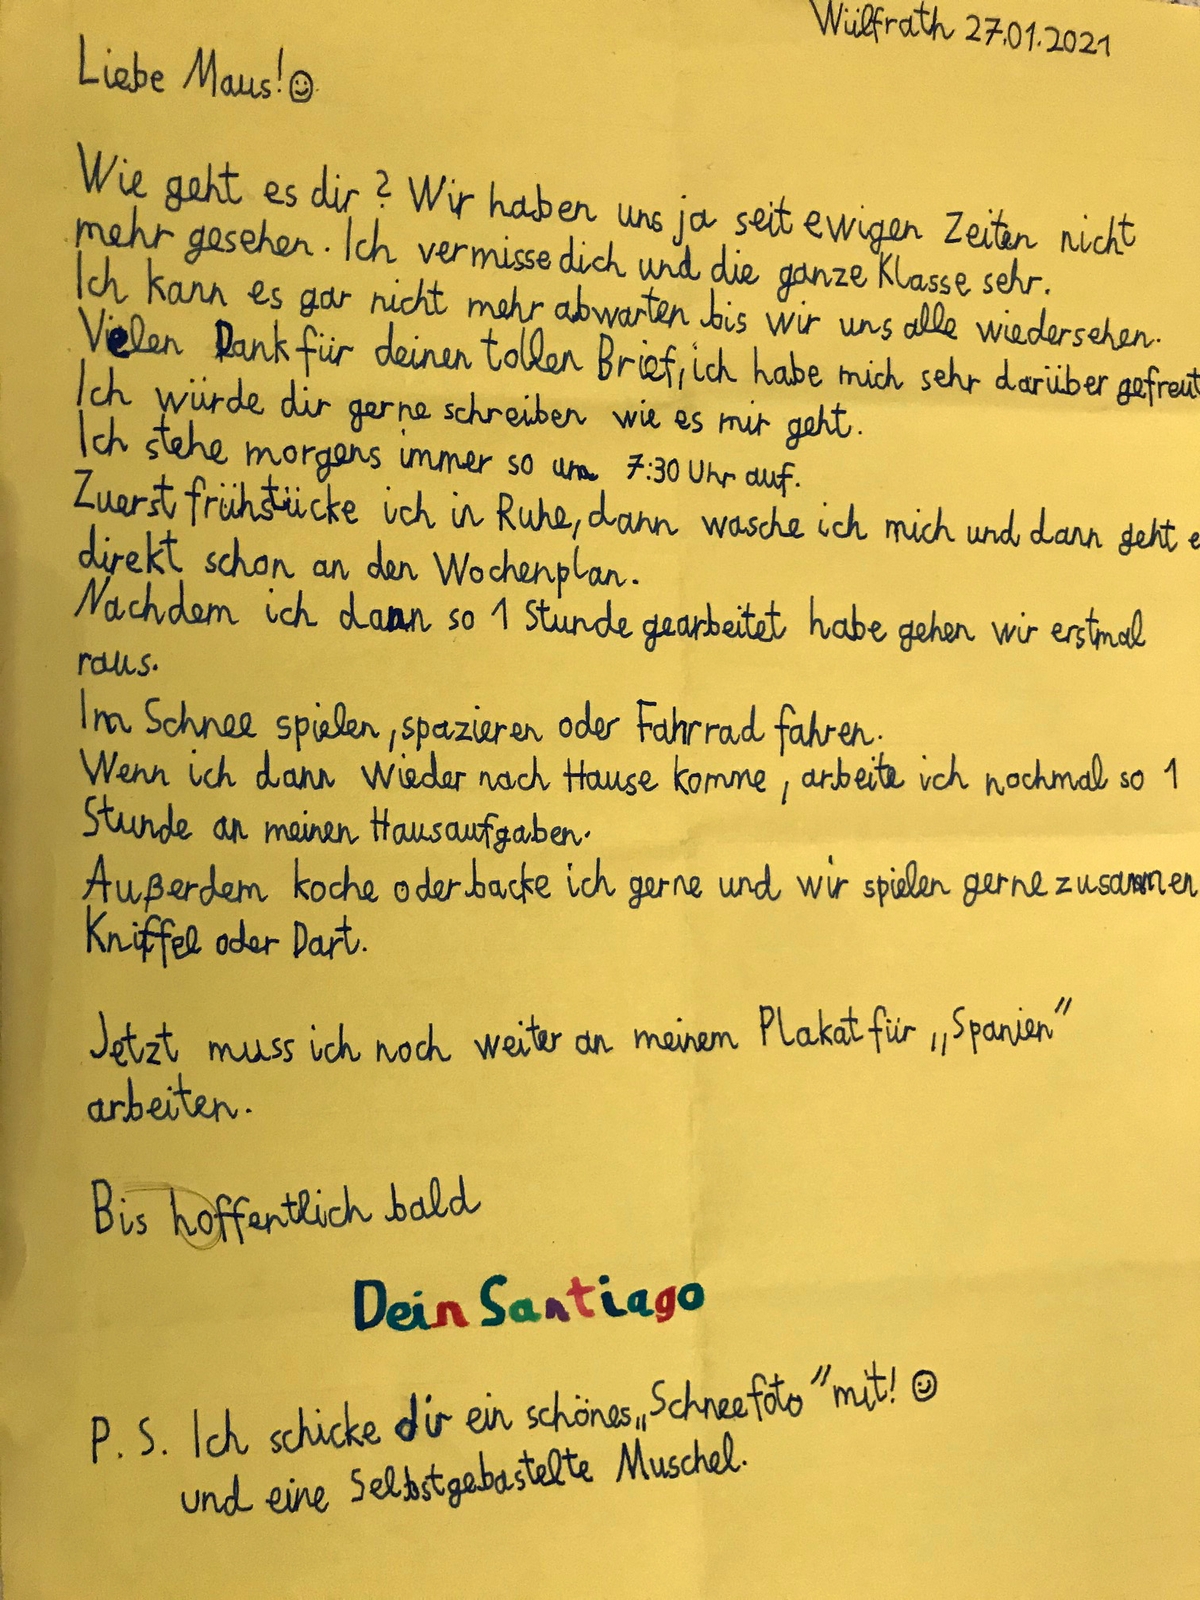 Wülfrath 27.01.2021
Liebe Maus!☺
Wie geht es dir? Wir haben uns ja seit ewigen Zeiten nicht
mehr gesehen. Ich vermisse dich und die ganze Klasse sehr.
Ich kann es gar nicht mehr abwarten bis wir uns alle wiedersehen.
Vielen Dank für deinen tollen Brief, ich habe mich sehr darüber gefreut
Ich würde dir gerne schreiben wie es mir geht.
Ich stehe morgens immer so um 7:30 Uhr auf.
Zuerst frühstücke ich in Ruhe, dann wasche ich mich und dann geht e
direkt schon an den Wochenplan.
Nachdem ich dann so 1 Stunde gearbeitet habe gehen wir erstmal
raus.
Im Schnee spielen, spazieren oder Fahrrad fahren.
Wenn ich dann wieder nach Hause komme, arbeite ich nochmal so 1
Stunde an meinen Hausaufgaben.
Außerdem koche oder backe ich gerne und wir spielen gerne zusammen
Kniffel oder Dart.
Jetzt muss ich noch weiter an meinem Plakat für „Spanien"
arbeiten.
Bis hoffentlich bald
Dein Santiago
P. S. Ich schicke dir ein schönes „Schneefoto" mit! ☺
und eine Selbstgebastelte Muschel.